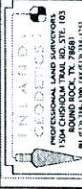 INLAND
GEODETICS
PROFESSIONAL LAND SURVEYORS
1504 CHISHOLM TRAIL RD. STE. 103
ROUND ROCK, TX. 78681